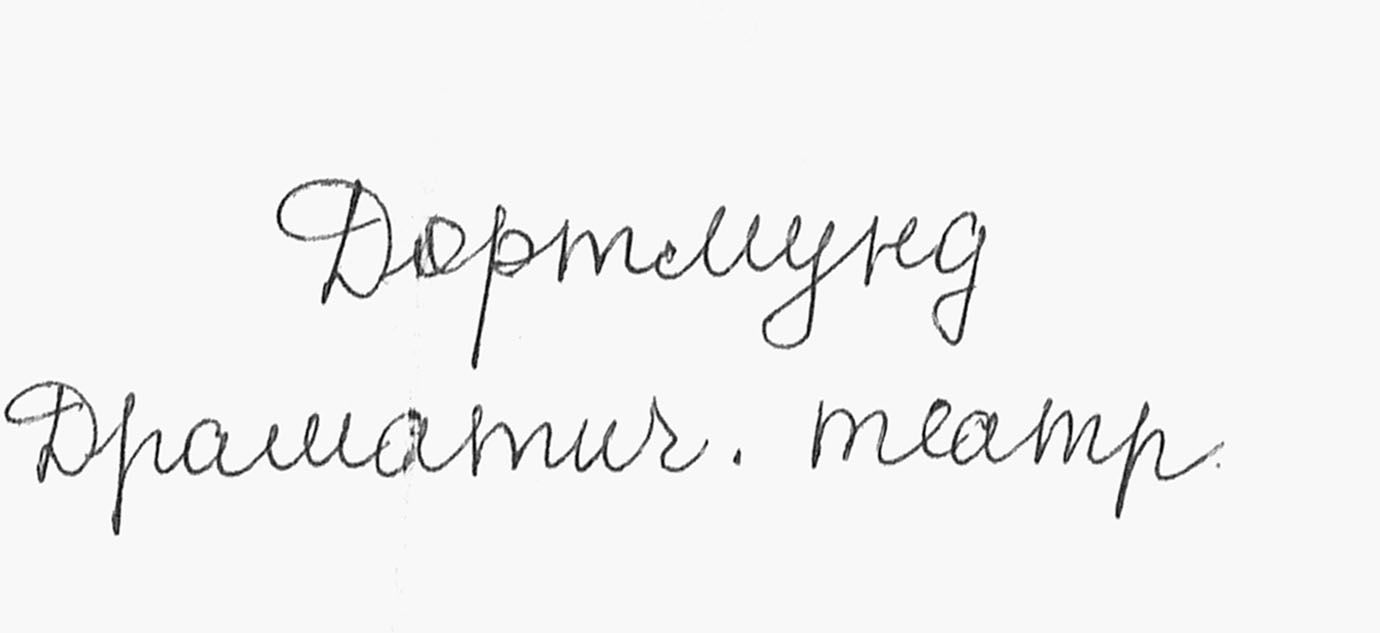 Дортмунд
Драматич. театр.